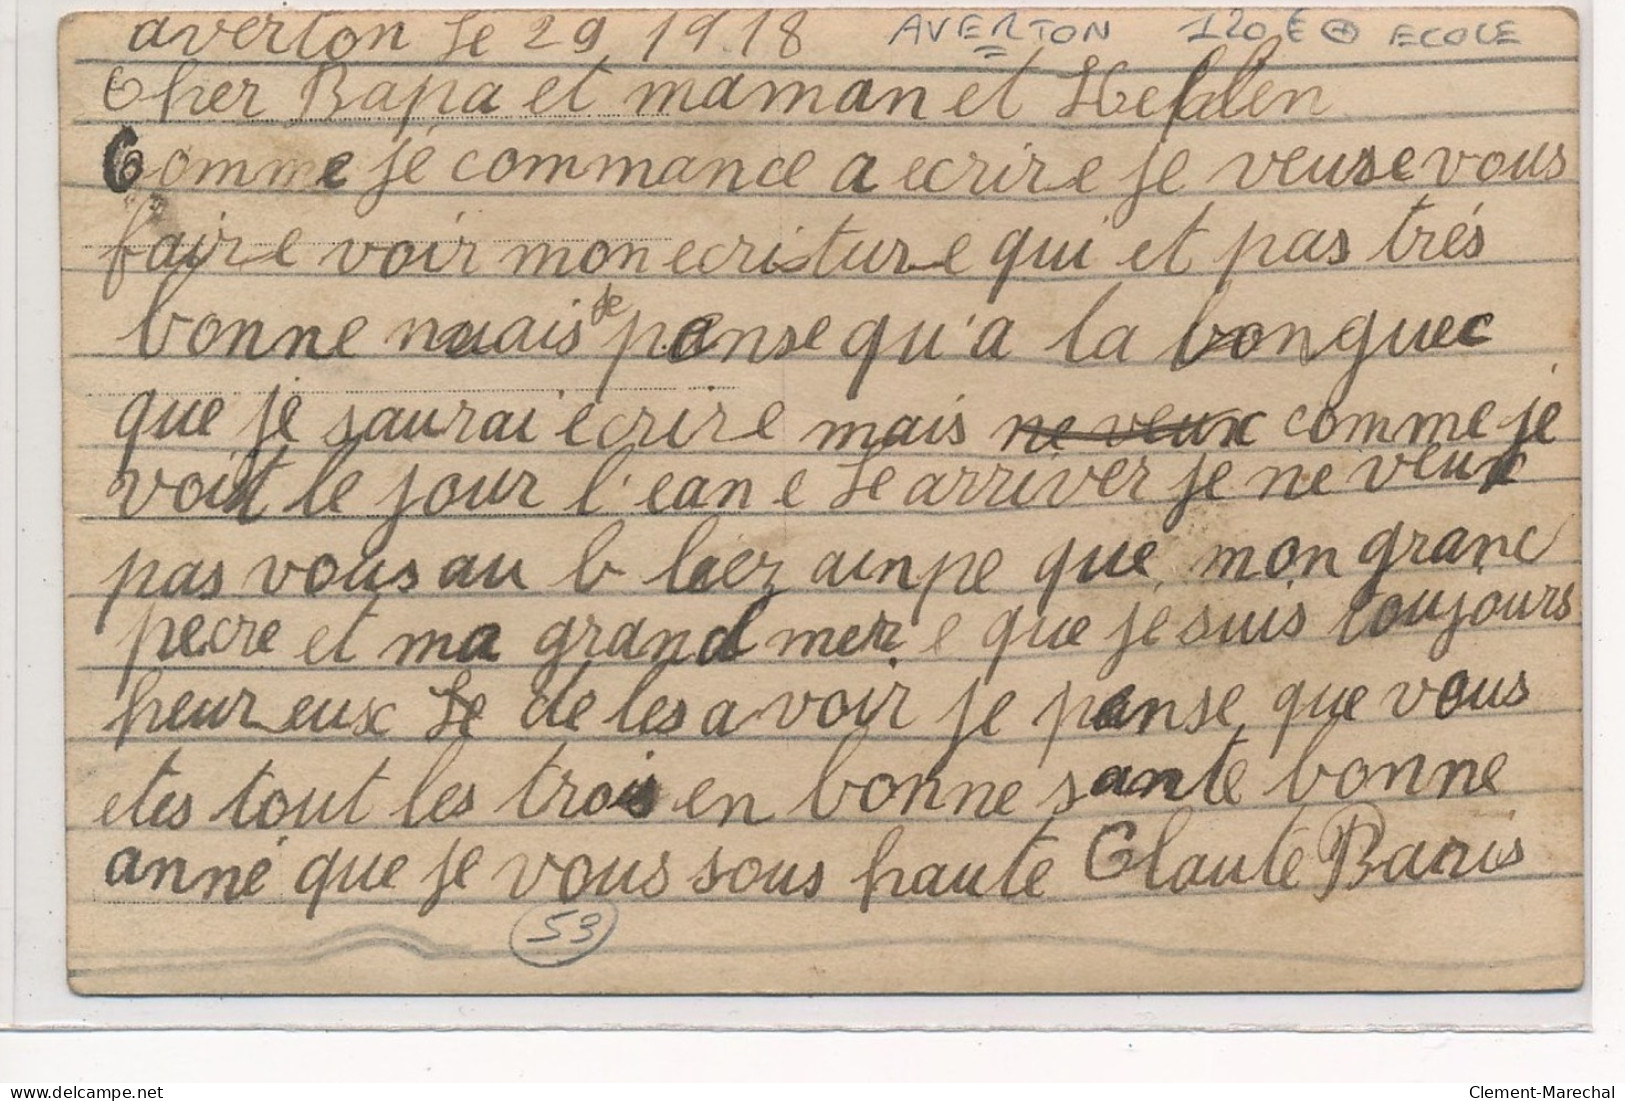 averton le 29 1918 AVERTON 120 € ECOLE
Cher Bapa et maman et Hellen
Comme je commance a ecrire je veuse vous
faire voir mon ecriture qui et pas trés
bonne mais je panse qu'a la longuec
que je saurai ecrire mais ne veux comme je
voit le jour l'eane le arriver je ne veux
pas vous au b liez ainpe que mon granc
pecre et ma grand mere que je suis toujours
heureux le de les avoir je panse que vous
etes tout les trois en bonne sante bonne
anné que je vous sous haute Claute Baris
53
Clement-Marechal